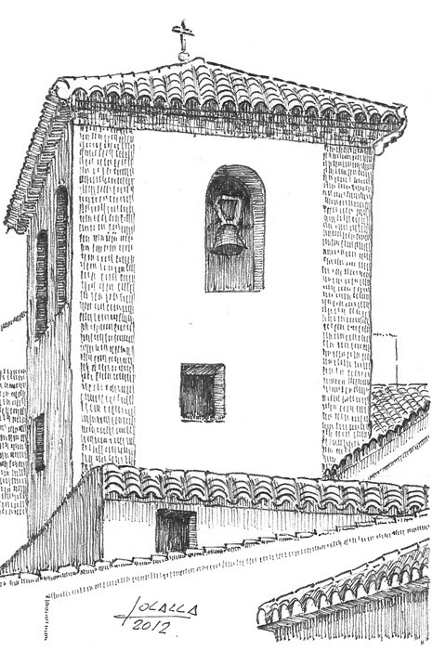 JOLALLA
2012